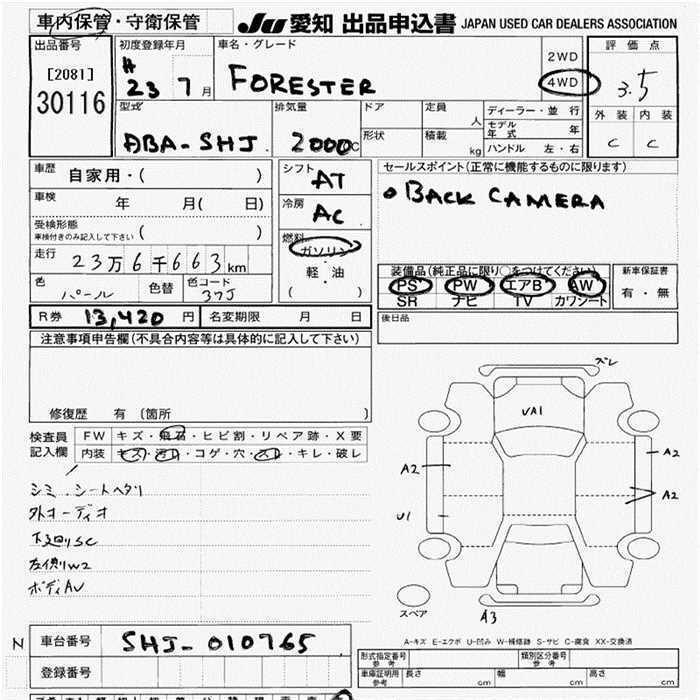 車内保管・守衛保管
JU 愛知 出品申込書 JAPAN USED CAR DEALERS ASSOCIATION
出品番号
[2081]
30116
初度登録年月
H 23 7月
車名・グレード
FORESTER
2WD
4WD
評価点
3.5
外装 内装
C C
型式
ABA-SHJ
排気量
2000cc
ドア
形状
定員 人
積載 kg
ディーラー・並行
モデル年式 年
ハンドル 左・右
車歴 自家用・( )
車検 年 月( 日)
受検形態
車検付きのみ記入して下さい ( )
走行 23万6千663km
色 パール 色替 色コード 37J
シフト AT
冷房 AC
燃料
ガソリン
軽・油
( )
セールスポイント(正常に機能するものに限ります)
・BACK CAMERA
装備品(純正品に限り○をつけてください)
PS PW エアB AW
SR ナビ TV カワシート
新車保証書
有・無
R券 13,420円 名変期限 月 日
後日品
注意事項申告欄(不具合内容等は具体的に記入して下さい)
修復歴 有 (箇所 )
検査員記入欄
FW キズ・飛石・ヒビ割・リペア跡・X要
内装 キズ・汚れ・コゲ・穴・スレ・キレ・破レ
シミ・シートヘタリ
外オーディオ
下廻りSC
左側W2
ボディAU
ズレ
UA1
A2
A2
A2
U1
A3
スペア
A-キズ E-エクボ U-凹み W-補修跡 S-サビ C-腐食 XX-交換済
N 車台番号 SHJ-010765
登録番号
形式指定番号 参考
類別区分番号 参考
車庫証明用 参考 長さ cm 幅 cm 高さ cm